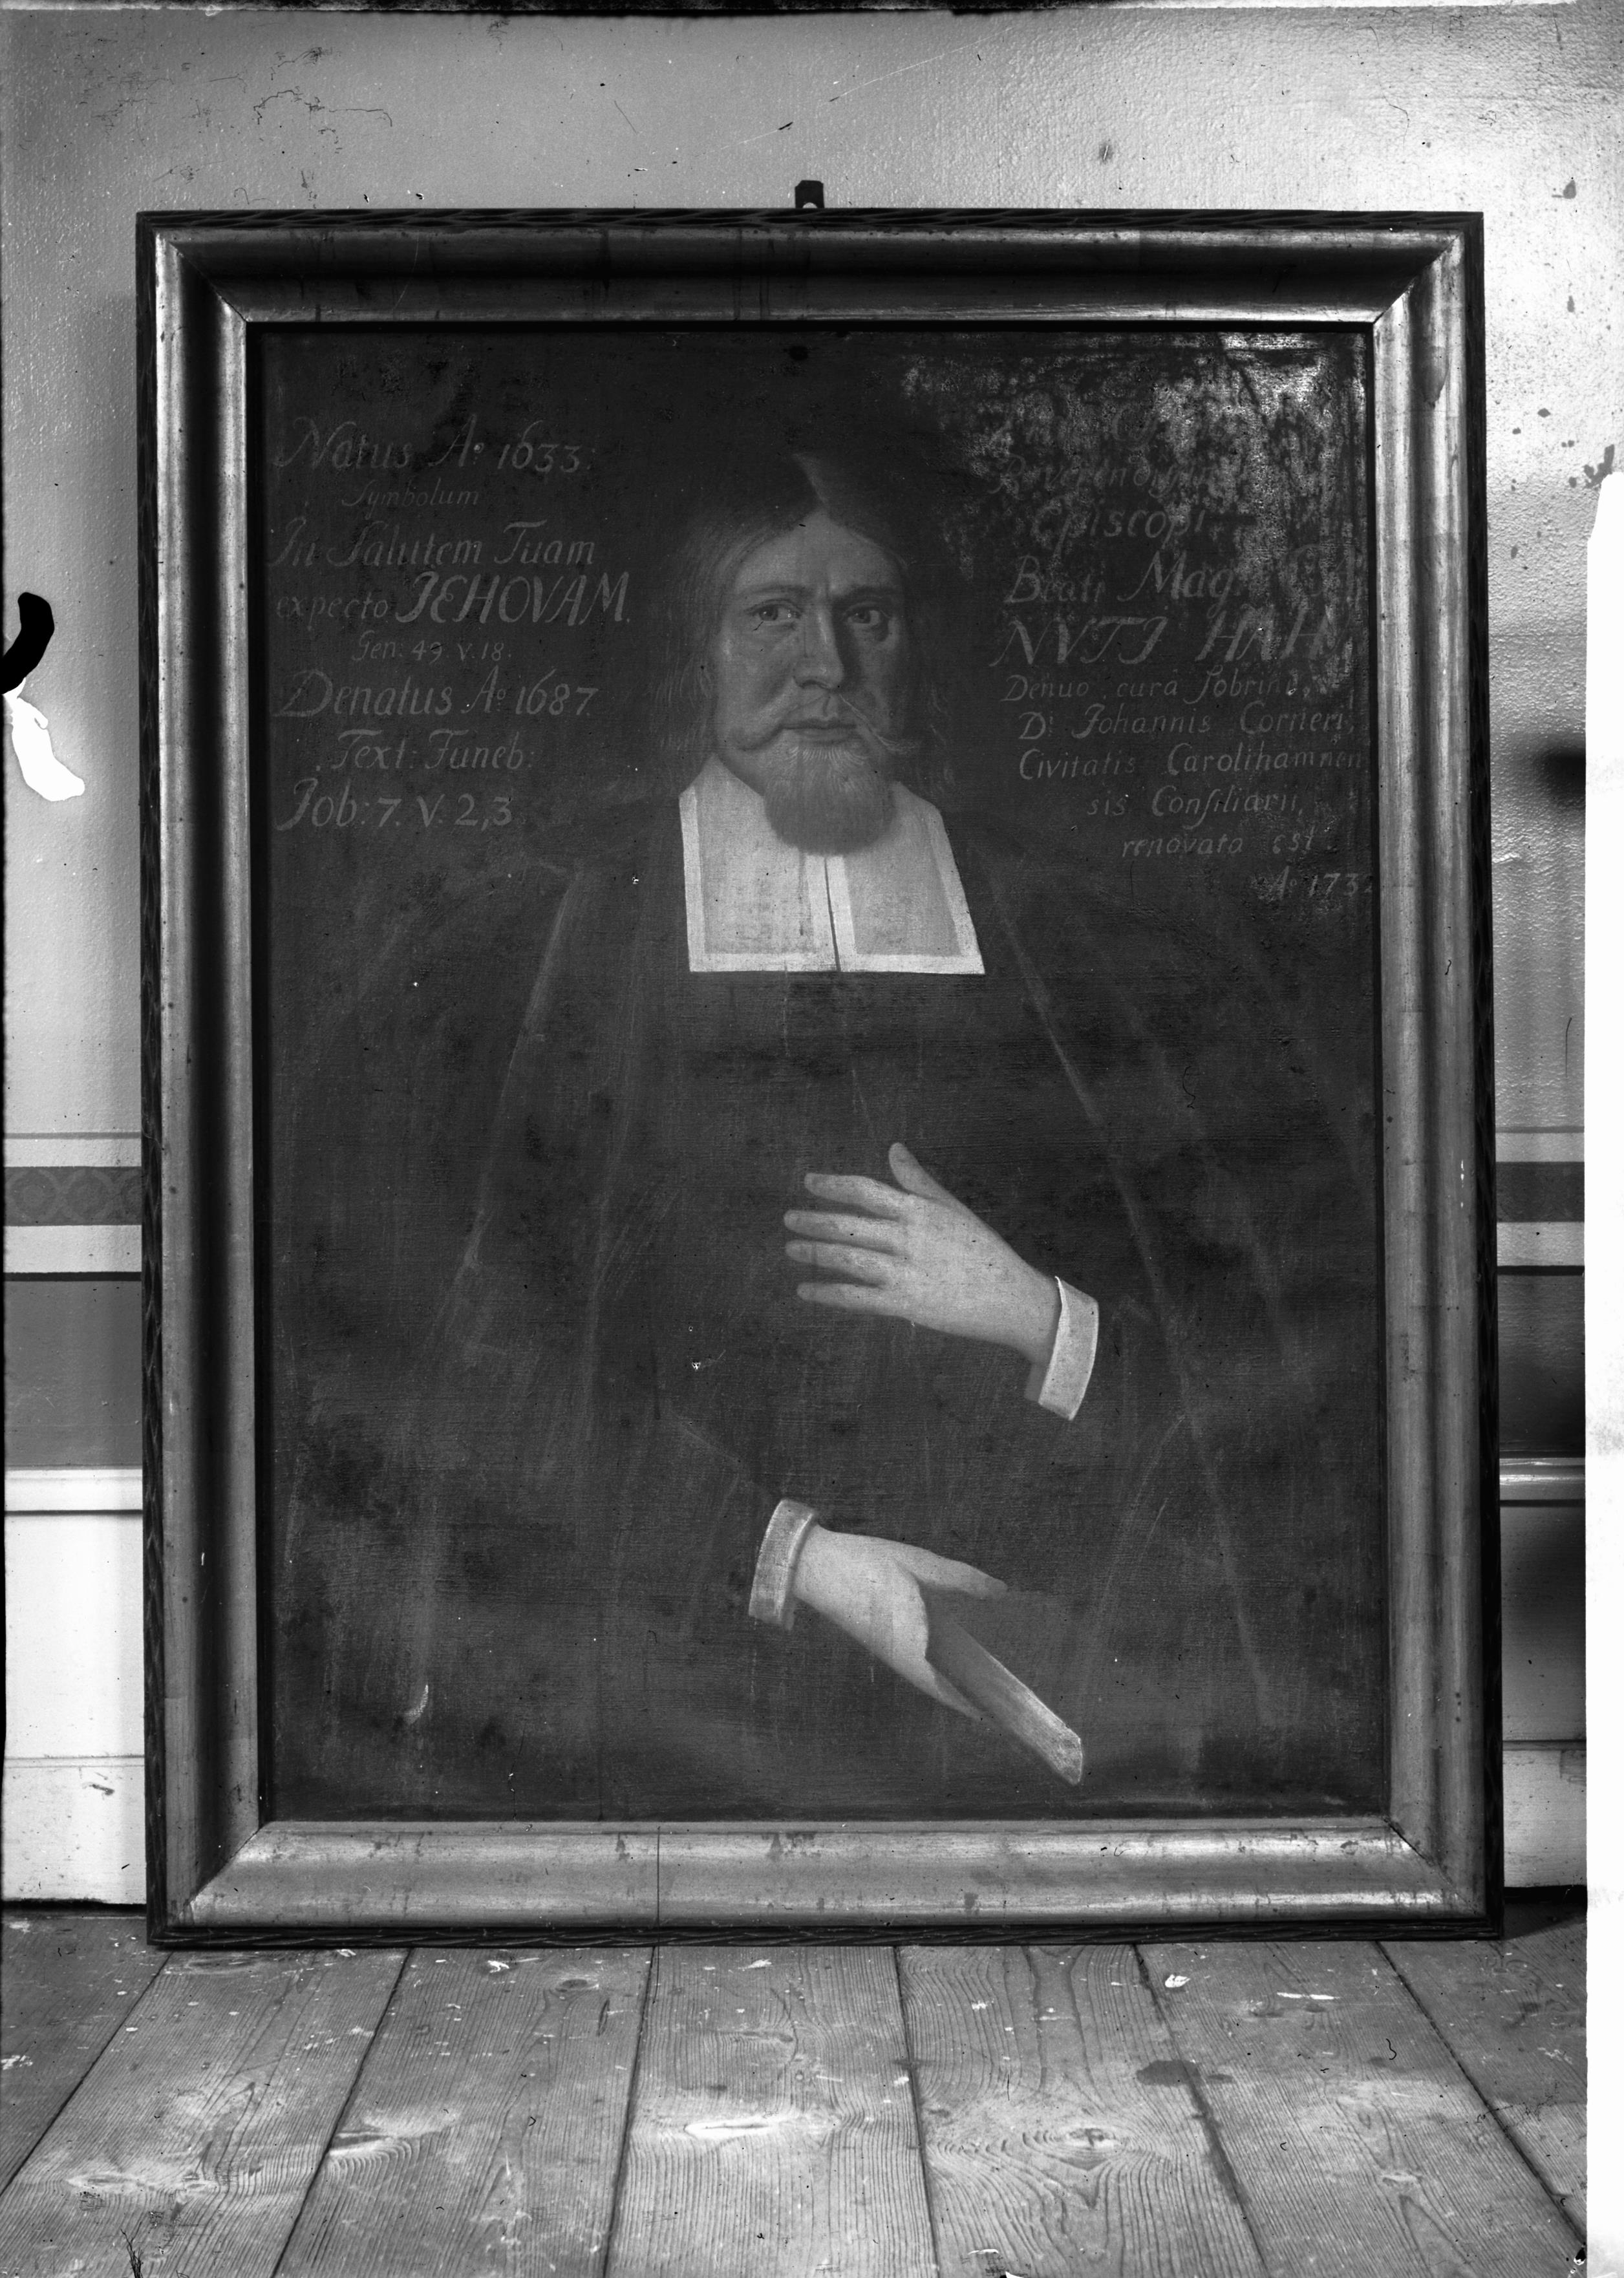 Natus Aº 1633.
Symbolum
In Salutem Tuam
expecto JEHOVAM.
Gen: 49. v. 18.
Denatus Aº 1687.
Text: Funeb:
Job: 7. V. 2,3
Episcopi
Beati Mag:
NVTI HAH
Denuo cura Sobrini,
D: Johannis Corneri,
Civitatis Carolihamnen
sis Consiliarii,
renovata est
Aº 173